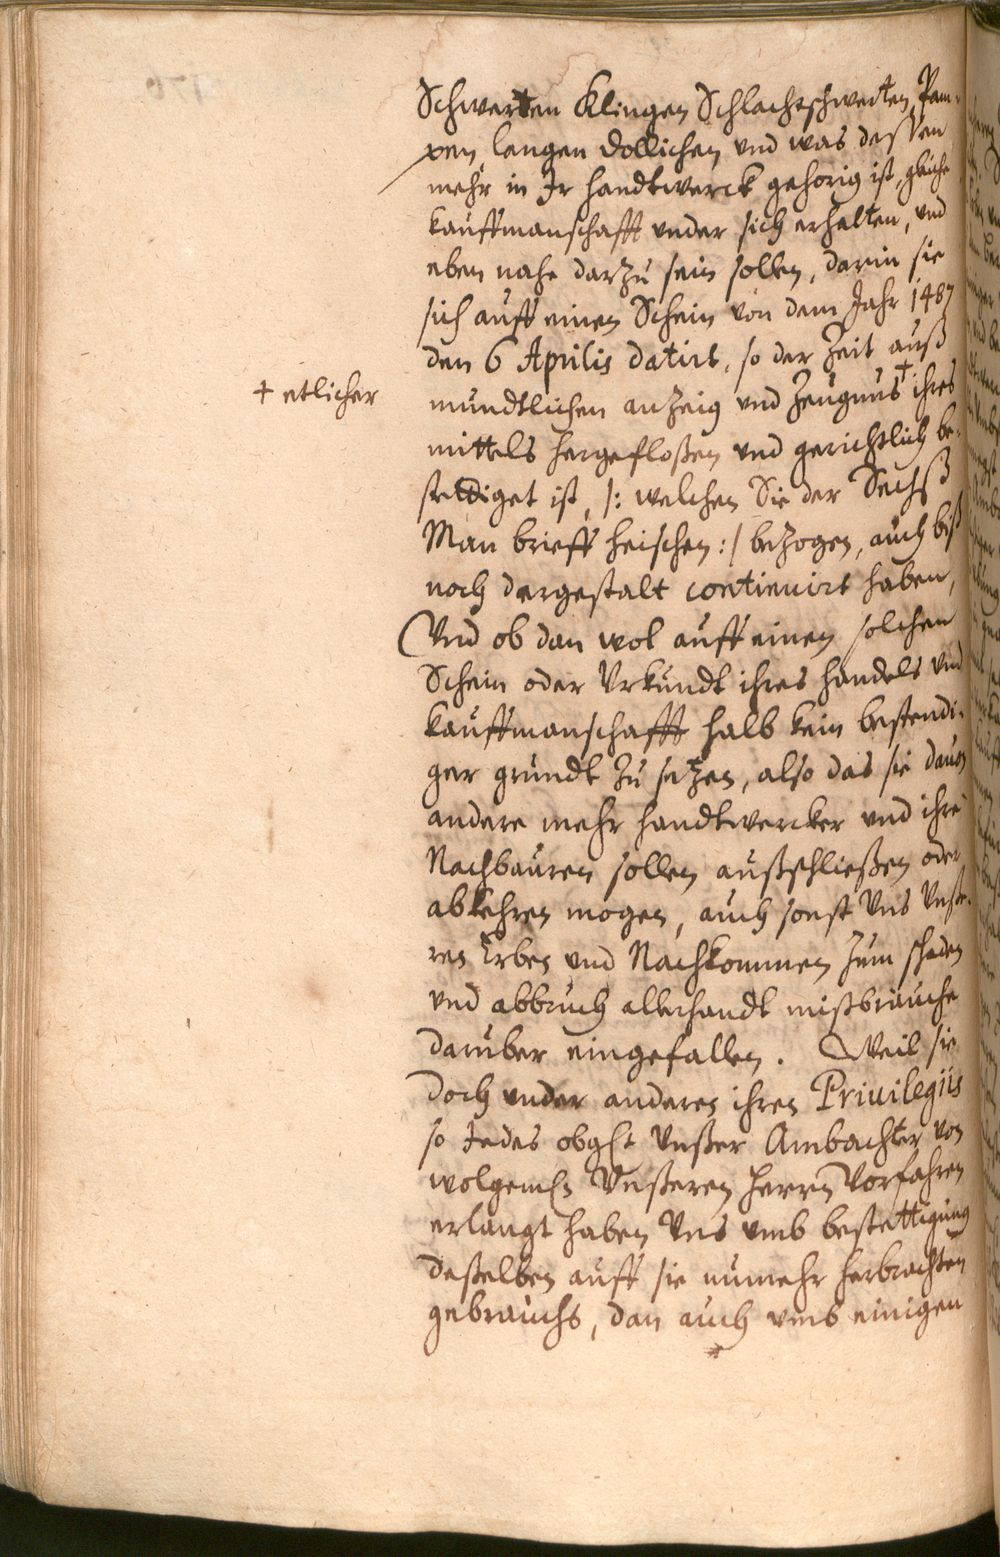 Schwerten Klingen Schlachtschwerten, Pam-
xen, lengen dollichen vnd was deßen
mehr in Jr handtwerck gehorig ist, gleiche
kauffmanschafft vnder sich erhalten, vnd
eben nahe darzu sein sollen, darin sie
sich auff einen Schein von dem Jahr 1487
den 6 Aprilis datirt, so der Zeit auß
+ etlicher
mundtlichen anzeig vnd Zeugnus + ihres
mittels hergefloßen vnd gerichtlich be-
stediget ist, /: welchen Sie der Sechß
Man brieff heischen :/ bezogen, auch biß
noch dergestalt continuirt haben,
Vnd ob dan wol auff einen solchen
Schein oder Vrkundt ihres handels vnd
kauffmanschafft halb kein bestendi-
ger grundt zu setzen, also das sie dauon
andere mehr handtwercker vnd ihre
Nachbauren sollen außschließen oder
abkehren mogen, auch sonst Vns Vnße-
ren Erben vnd Nachkommen zum schaden
vnd abbruch allerhandt mißbrauche
daruber eingefallen. Weil sie
doch vnder anderen ihren Priuilegiis
so Jedes obgt Vnßer Ambachter von
wolgemn Vnßeren Herrn Vorfahren
erlangt haben Vns vmb bestettigung
deßelben auff sie numehr herbrachten
gebrauchs, dan auch vmb einigen